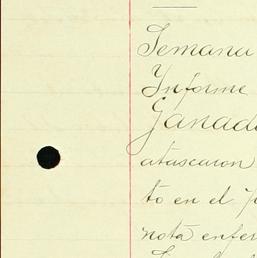 Semana
Informe
Ganad
atascaron
to en el
nota enfer